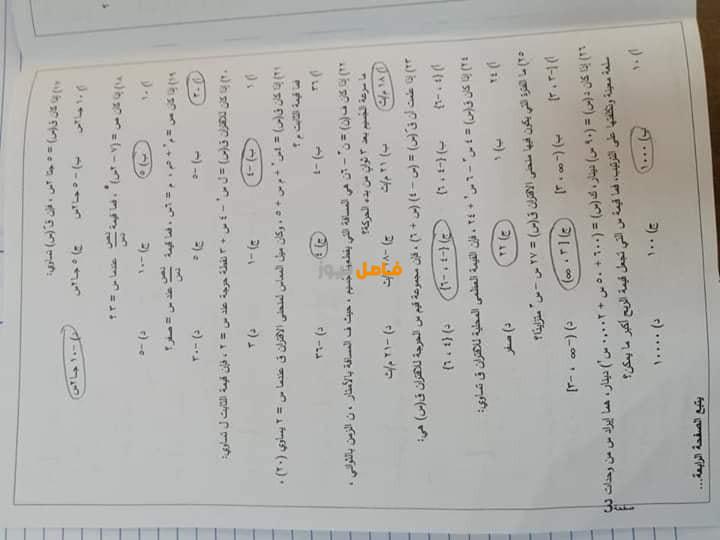 ١٧) إذا كان ق(س) = ٥ جتا ٢س ، فإن قَ(س) تساوي:
أ) ١٠ جا٢س ب) -٥ جا٢س ج) ٥ جا٢س د) -١٠ جا٢س
١٨) إذا كان ص = (٧ - ٢س)⁵ ، فما قيمة دص/دس عندما س = ٣ ؟
أ) ١٠ ب) ٥ ج) -١٠ د) -٥
١٩) إذا كان ص = م² + ٥م ، م = ٦س ، فما قيمة دص/دس عند س = صفر؟
أ) ٣٠ ب) -٥ ج) ٥ د) -٣٠
٢٠) إذا كان للاقتران ق(س) = ل س² - ٤ س + ٣ نقطة حرجة عند س = ٢ ، فإن قيمة الثابت ل تساوي:
أ) ١ ب) -٤ ج) -١ د) ٣
٢١) إذا كان ق(س) = ٤س² + م س + ٥ ، وكان ميل المماس لمنحنى الاقتران ق عندما س = ٢ يساوي (٢٠) ،
فما قيمة الثابت م ؟
أ) ٣٦ ب) -٤ ج) ٤ د) -٣٦
٢٢) إذا كان ف(ن) = ن³ - ٦ن هي المسافة التي يقطعها جسيم ، حيث ف المسافة بالأمتار ، ن الزمن بالثواني ،
ما سرعة الجسيم بعد ٣ ثوانٍ من بدء الحركة؟
أ) ١٨ م/ث ب) ٢١ م/ث ج) -١٨ م/ث د) -٢١ م/ث
٢٣) إذا علمت أن قَ(س) = (س - ٤) (س + ٦) ، فإن مجموعة قيم س الحرجة للاقتران ق(س) هي:
أ) {٤ ، -٦} ب) {-٤ ، ٦} ج) {-٤ ، -٦} د) {٤ ، ٦}
٢٤) إذا كان ق(س) = ٤ س³ - ٦ س² + ٢٤ ، فإن القيمة العظمى المحلية للاقتران ق تساوي:
أ) ٢٤ ب) ١ ج) ٢٢ د) صفر
٢٥) ما الفترة التي يكون فيها منحنى الاقتران ق(س) = ٢٧ س - س³ متزايدًا؟
أ) [-٣ ، ٣] ب) (-∞ ، ٣] ج) [٣ ، ∞) د) (-∞ ، -٣]
٢٦) إذا كان د(س) = (٩٠ س) دينار، ك(س) = (٦٠٠ + ٥٠ س + ٠,٠٠٢ س²) دينار، هما إيراد س من وحدات
سلعة معينة وتكلفتها على الترتيب، فما قيمة س التي تجعل قيمة الربح أكبر ما يمكن؟
أ) ١٠ ب) ١٠٠٠ ج) ١٠٠ د) ١٠٠٠٠
يتبع الصفحة الرابعة...
فاصل نيوز